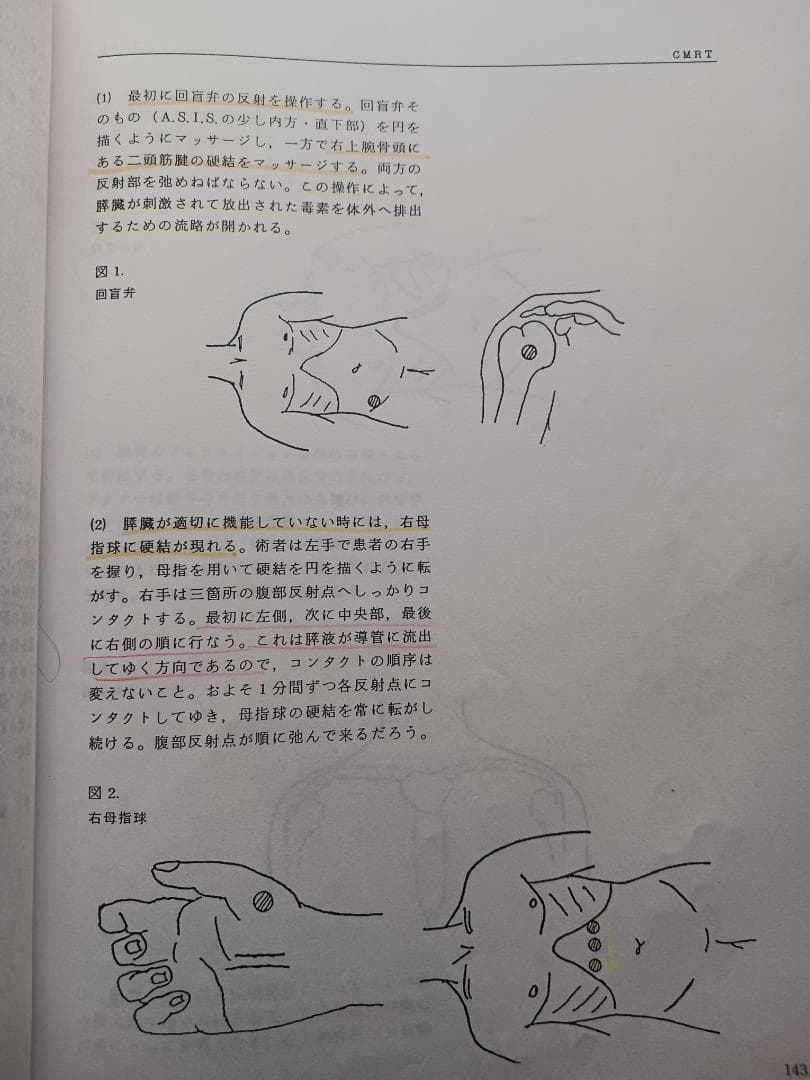 CMRT
(1) 最初に回盲弁の反射を操作する。回盲弁そ
のもの（A.S.I.S.の少し内方・直下部）を円を
描くようにマッサージし，一方で右上腕骨頭に
ある二頭筋腱の硬結をマッサージする。両方の
反射部を弛めねばならない。この操作によって，
膵臓が刺激されて放出された毒素を体外へ排出
するための流路が開かれる。
図1.
回盲弁
(2) 膵臓が適切に機能していない時には，右母
指球に硬結が現れる。術者は左手で患者の右手
を握り，母指を用いて硬結を円を描くように転
がす。右手は三箇所の腹部反射点へしっかりコ
ンタクトする。最初に左側，次に中央部，最後
に右側の順に行なう。これは膵液が導管に流出
してゆく方向であるので，コンタクトの順序は
変えないこと。およそ1分間ずつ各反射点にコ
ンタクトしてゆき，母指球の硬結を常に転がし
続ける。腹部反射点が順に弛んで来るだろう。
図2.
右母指球
143